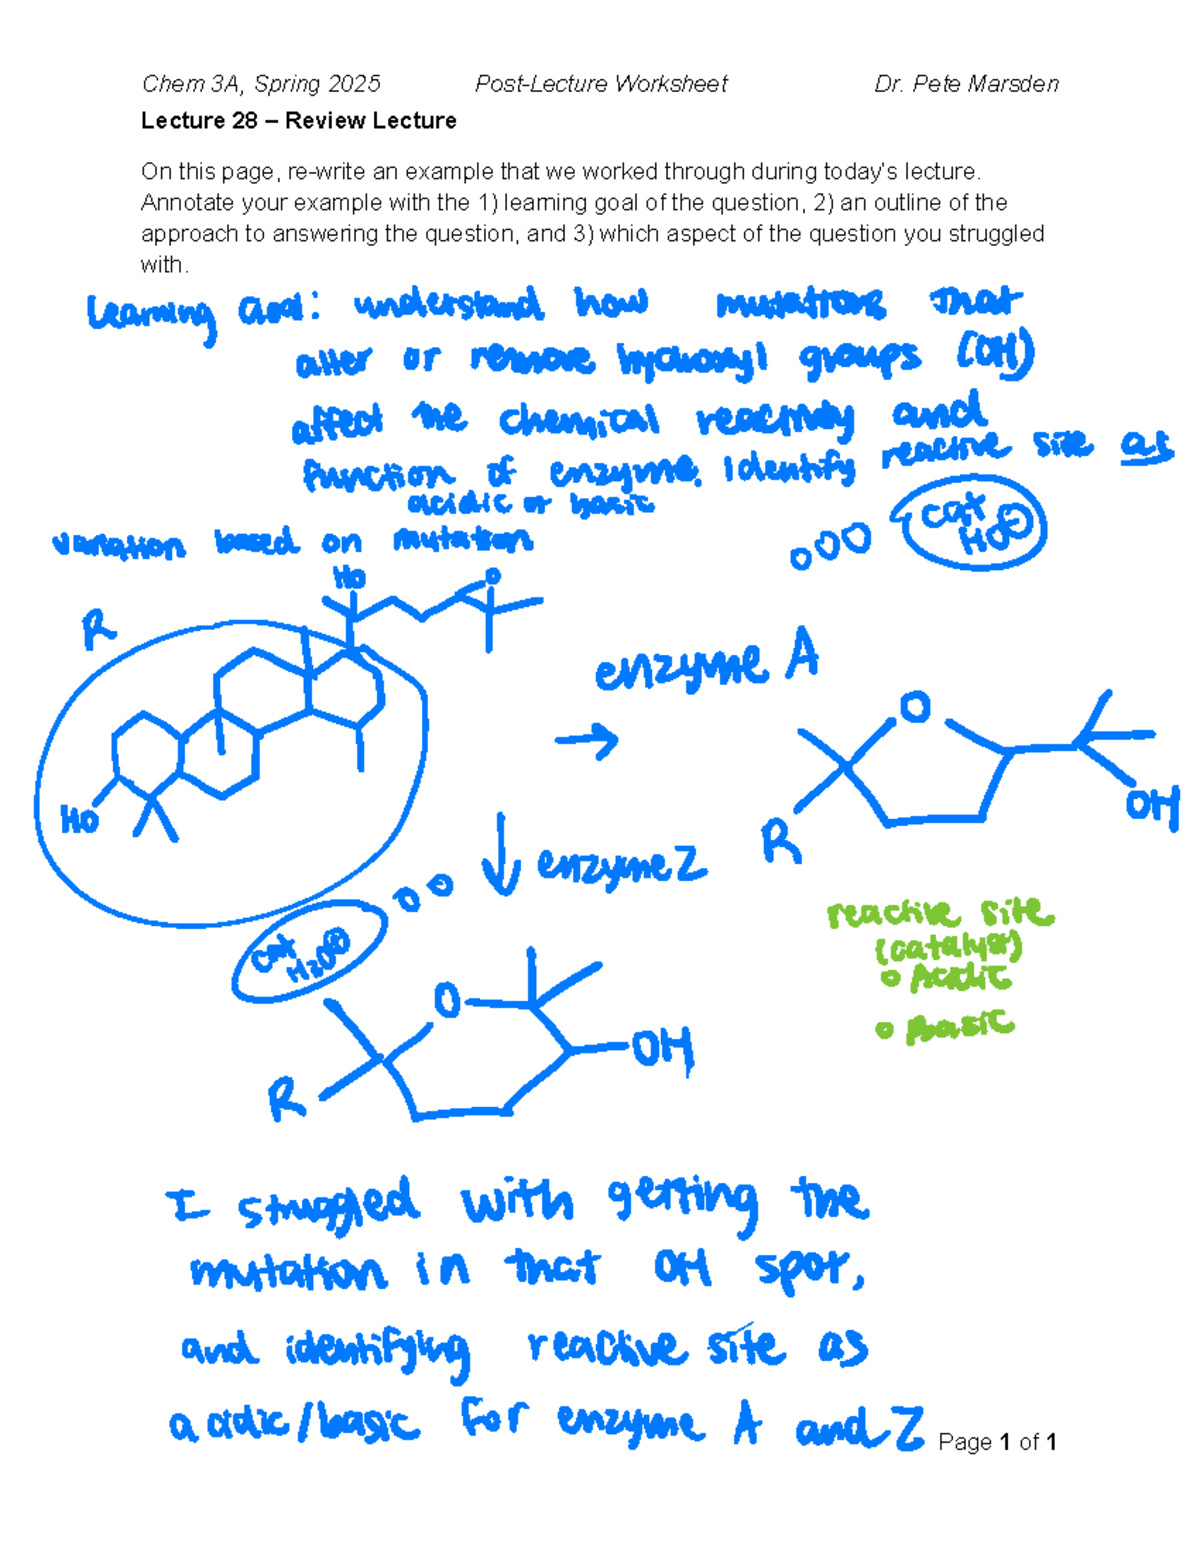 Chem 3A, Spring 2025 Post-Lecture Worksheet Dr. Pete Marsden
Lecture 28 – Review Lecture
On this page, re-write an example that we worked through during today's lecture.
Annotate your example with the 1) learning goal of the question, 2) an outline of the
approach to answering the question, and 3) which aspect of the question you struggled
with.
Learning Goal: understand how mutations that
alter or remove hydroxyl groups (OH)
affect the chemical reactivity and
function of enzyme. Identify reactive site as
acidic or basic
variation based on mutation
cat
HO⊖
HO
O
R
enzyme A
→
O
HO
OH
R
↓ enzyme Z
cat
H₃O⊕
reactive site
(catalyst)
o Acidic
o Basic
O
OH
R
I struggled with getting the
mutation in that OH spot,
and identifying reactive site as
acidic/basic for enzyme A and Z
Page 1 of 1